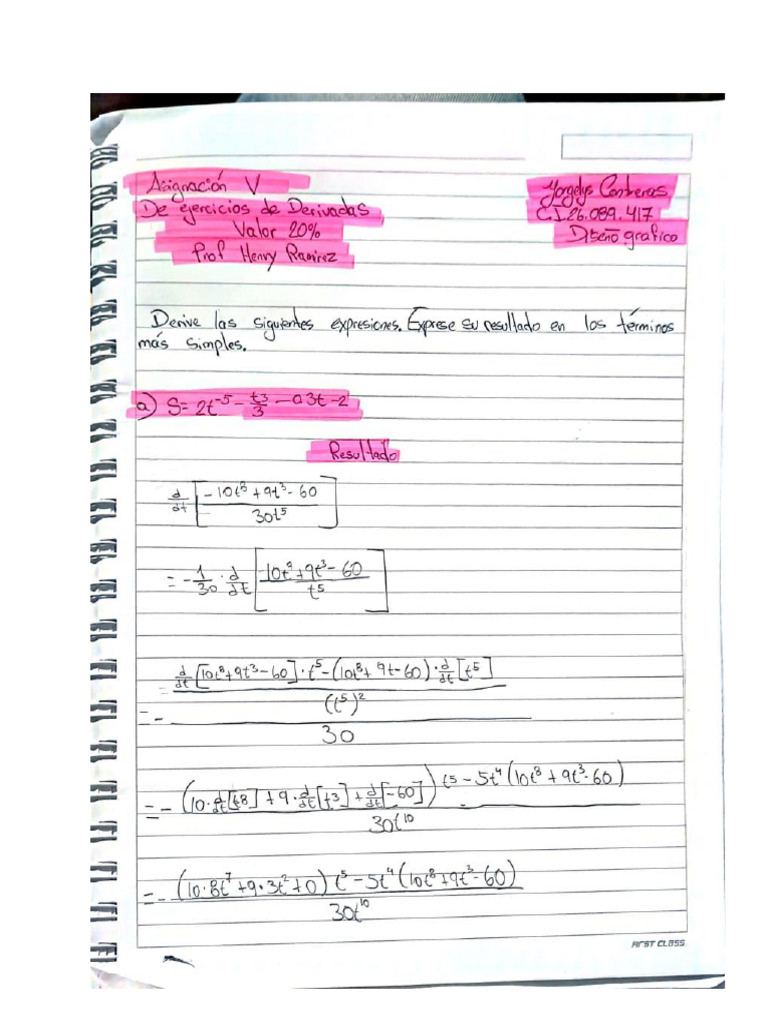 Asignación V
De ejercicios de Derivadas
Valor 20%
Prof Henry Ramirez
Yorgelys Contreras
C.I 26.089.417
Diseño grafico
Derive las siguientes expresiones. Exprese su resultado en los términos
más simples.
a) S= 2t⁻⁵ - t3/3 - 03t-2
Resultado
d/dt [-10t⁸ + 9t³ - 60 / 30t⁵]
= - 1/30 · d/dt [-10t⁸ + 9t³ - 60 / t⁵]
= - d/dt [10t⁸ + 9t³ - 60] · t⁵ - (10t⁸ + 9t - 60) · d/dt [t⁵] / (t⁵)² / 30
= - (10 · d/dt [t8] + 9 · d/dt [t3] + d/dt [-60]) t5 - 5t⁴ (10t⁸ + 9t³ - 60) / 30t¹⁰
= - (10·8t⁷ + 9·3t² + 0) t⁵ - 5t⁴ (10t⁸ + 9t³ - 60) / 30t¹⁰
FIRST CLASS